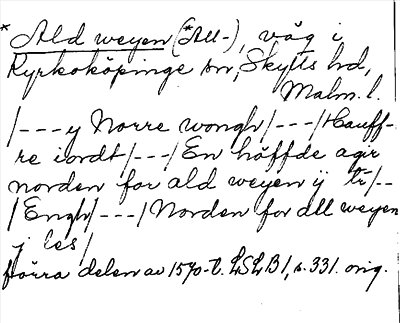 * Ald weyen (*All-), väg i
Kyrkoköpinge sn, Skytts hd,
Malm. l.
/---y Norre wongh/---/Hauff-
re iordt/---/En höffde agir
norden for ald weyen ÿ tr/--
/Engh/---/Norden for all weyen
y les/
förra delen av 1570-t. LSLB 1, s. 331. orig.